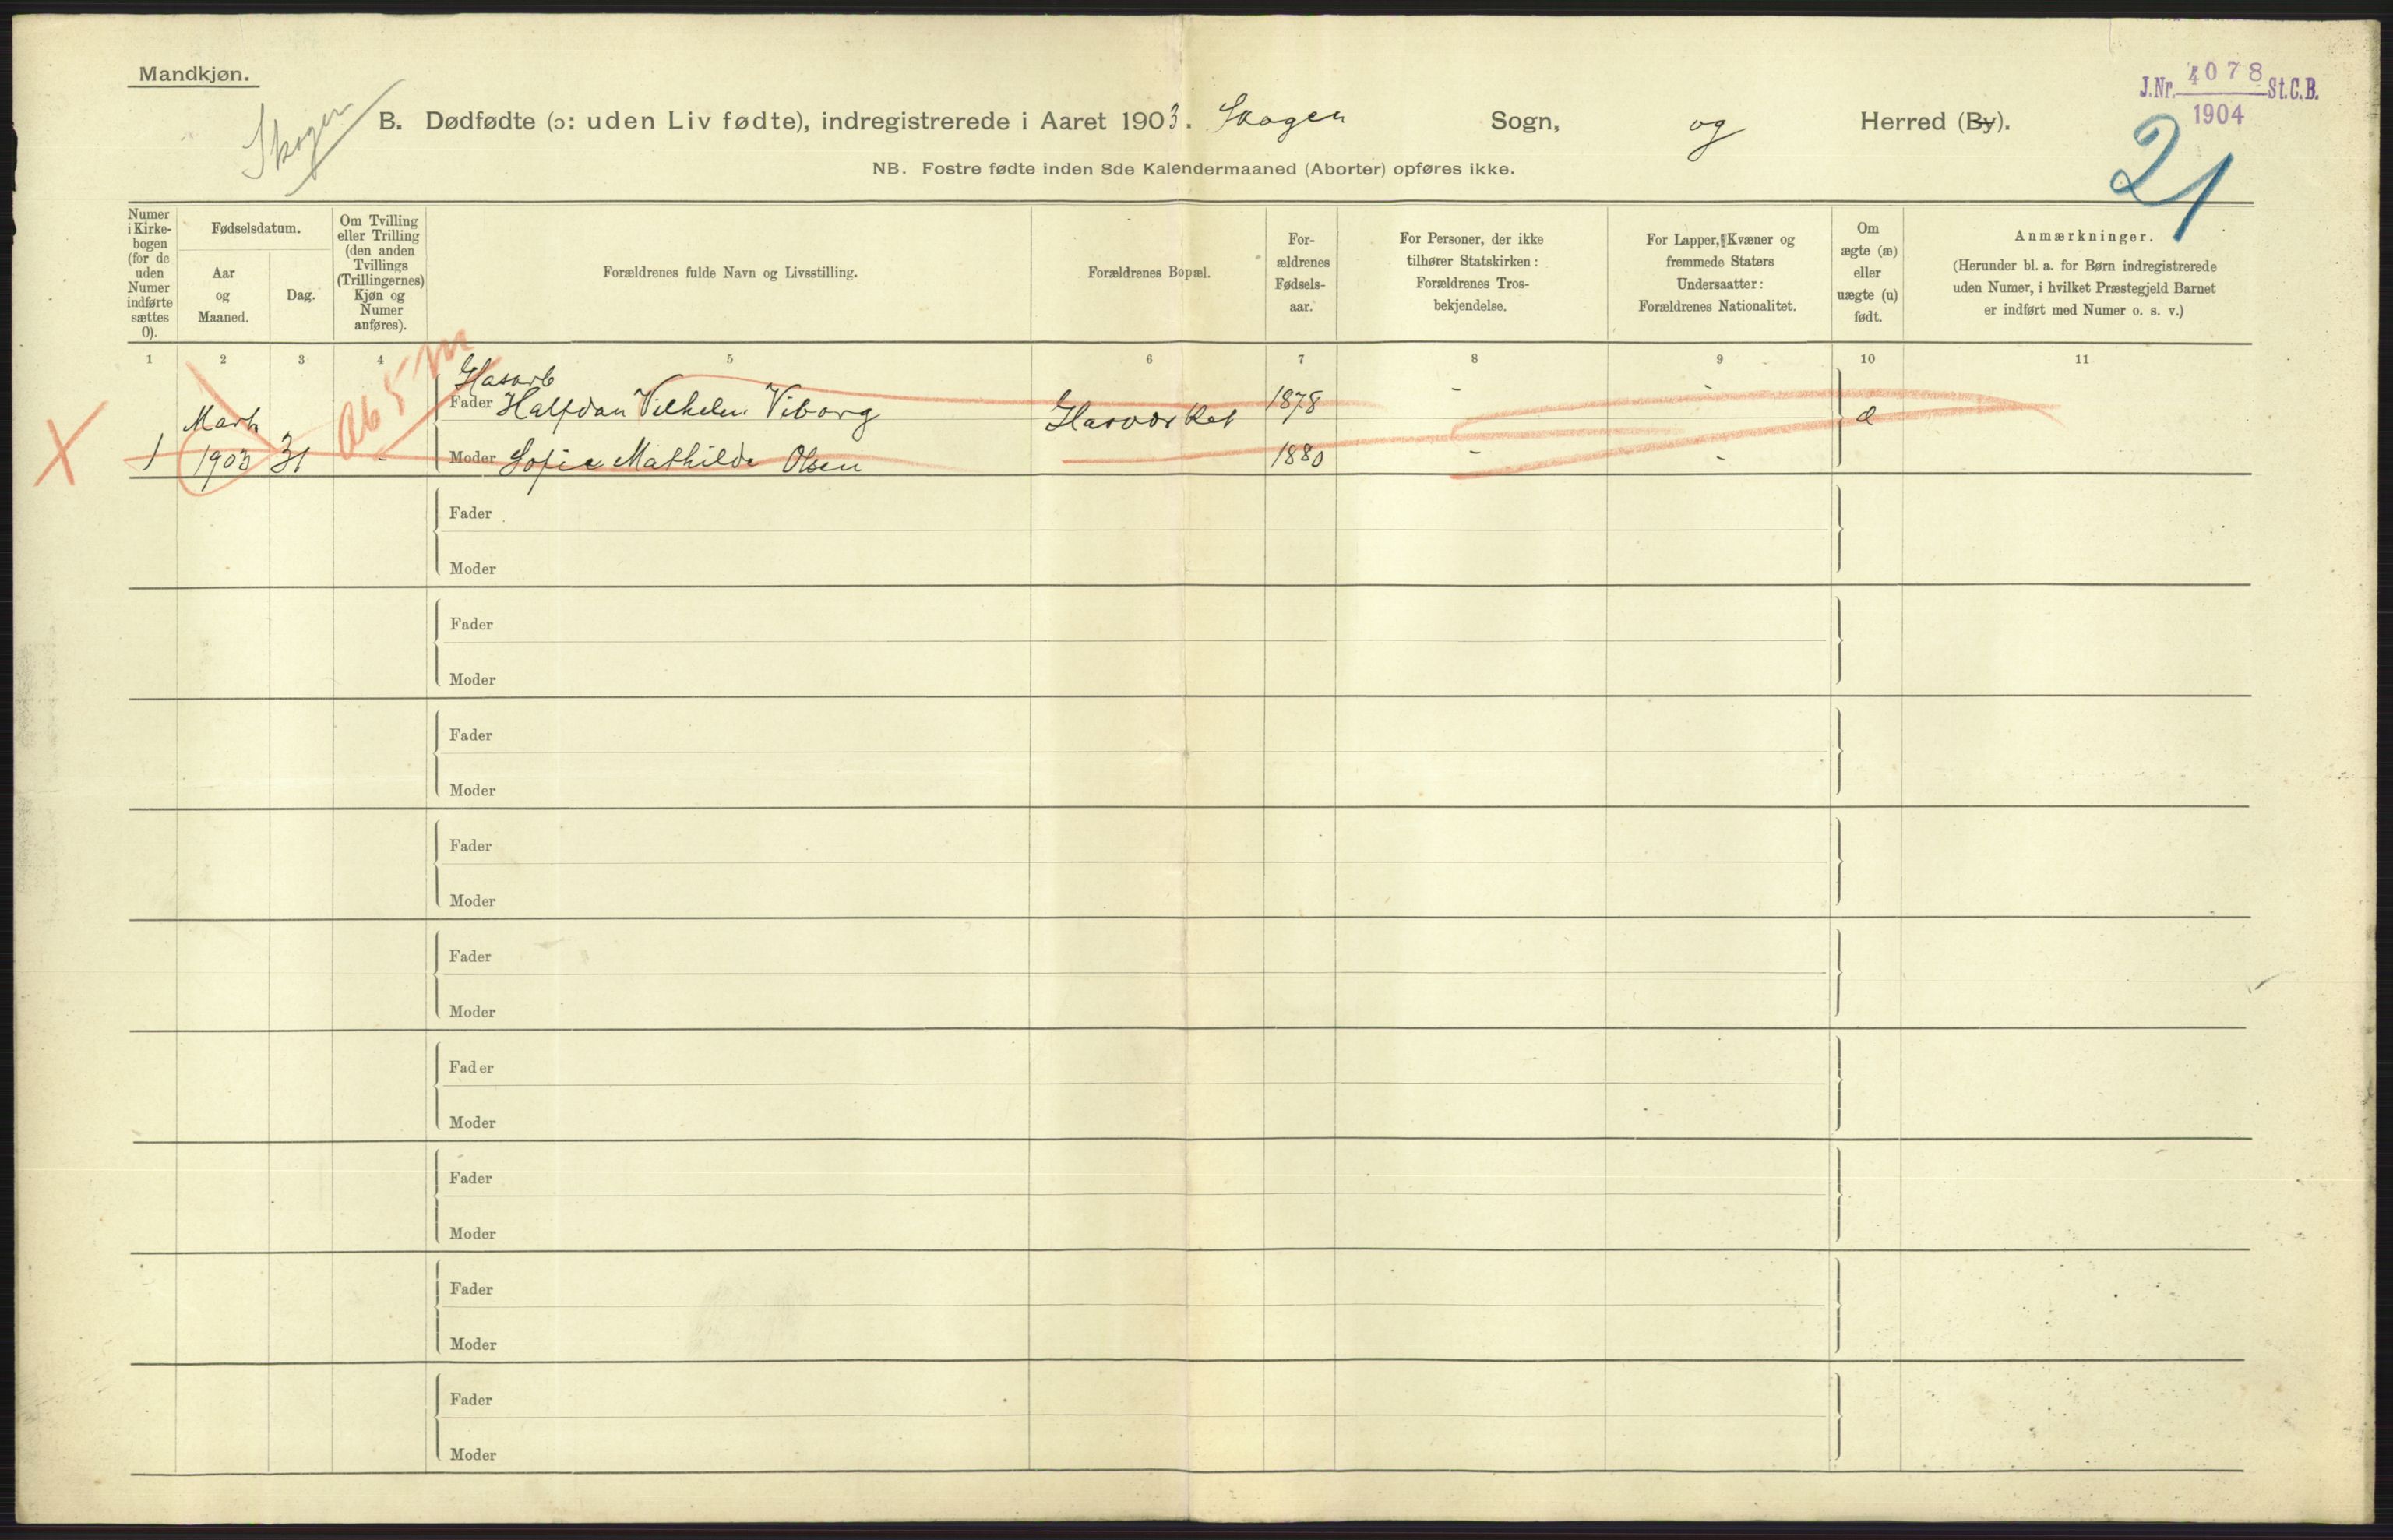 Mandkjøn.
J.Nr. 4078 St.C.B.
1904
Skoger
B. Dødfødte (ɔ: uden Liv fødte), indregistrerede i Aaret 1903. Skoger Sogn, og Herred (By).
21
NB. Fostre fødte inden 8de Kalendermaaned (Aborter) opføres ikke.
Numer
i Kirke-
bogen
(for de
uden
Numer
indførte
sættes
0).
Fødselsdatum.
Aar
og
Maaned.
Dag.
Om Tvilling
eller Trilling
(den anden
Tvillings
(Trillingernes)
Kjøn og
Numer
anføres).
Forældrenes fulde Navn og Livsstilling.
Forældrenes Bopæl.
For-
ældrenes
Fødsels-
aar.
For Personer, der ikke
tilhører Statskirken:
Forældrenes Tros-
bekjendelse.
For Lapper, Kvæner og
fremmede Staters
Undersaatter:
Forældrenes Nationalitet.
Om
ægte (æ)
eller
uægte (u)
født.
Anmærkninger.
(Herunder bl. a. for Børn indregistrerede
uden Numer, i hvilket Præstegjeld Barnet
er indført med Numer o. s. v.)
1 2 3 4 5 6 7 8 9 10 11
Ab 5 m
Fader Halfdan Vilhelm Viborg 1878 - -
Marts Glasværket æ
1 1903 31 - Moder Sofie Mathilde Olsen 1880 - -
Fader
Moder
Fader
Moder
Fader
Moder
Fader
Moder
Fader
Moder
Fader
Moder
Fader
Moder
Fader
Moder
Fader
Moder